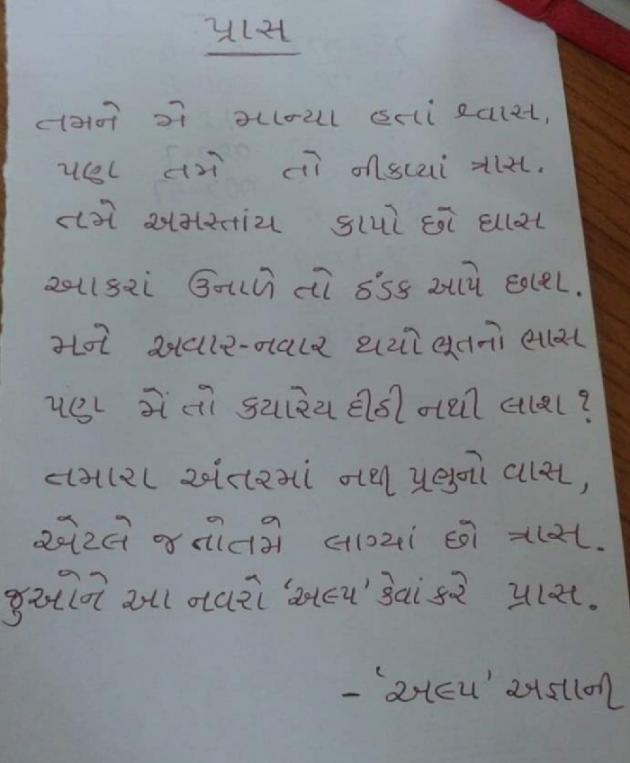 પ્રાસ
તમને મે માન્યા હતાં શ્વાસ,
પણ તમે તો નીકળ્યાં ત્રાસ.
તમે અમસ્તાંય કાપો છો ઘાસ
આકરાં ઉનાળે તો ઠંડક આપે છાશ.
મને અવાર-નવાર થયો ભૂતનો ભાસ
પણ મેં તો કયારેય દીઠી નથી લાશ?
તમારા અંતરમાં નથી પ્રભુનો વાસ,
એટલે જ તો તમે લાગ્યાં છો ત્રાસ.
જુઓને આ નવરો ‘અલ્પ’ કેવાં કરે પ્રાસ.
- ‘અલ્પ’ અજ્ઞાની